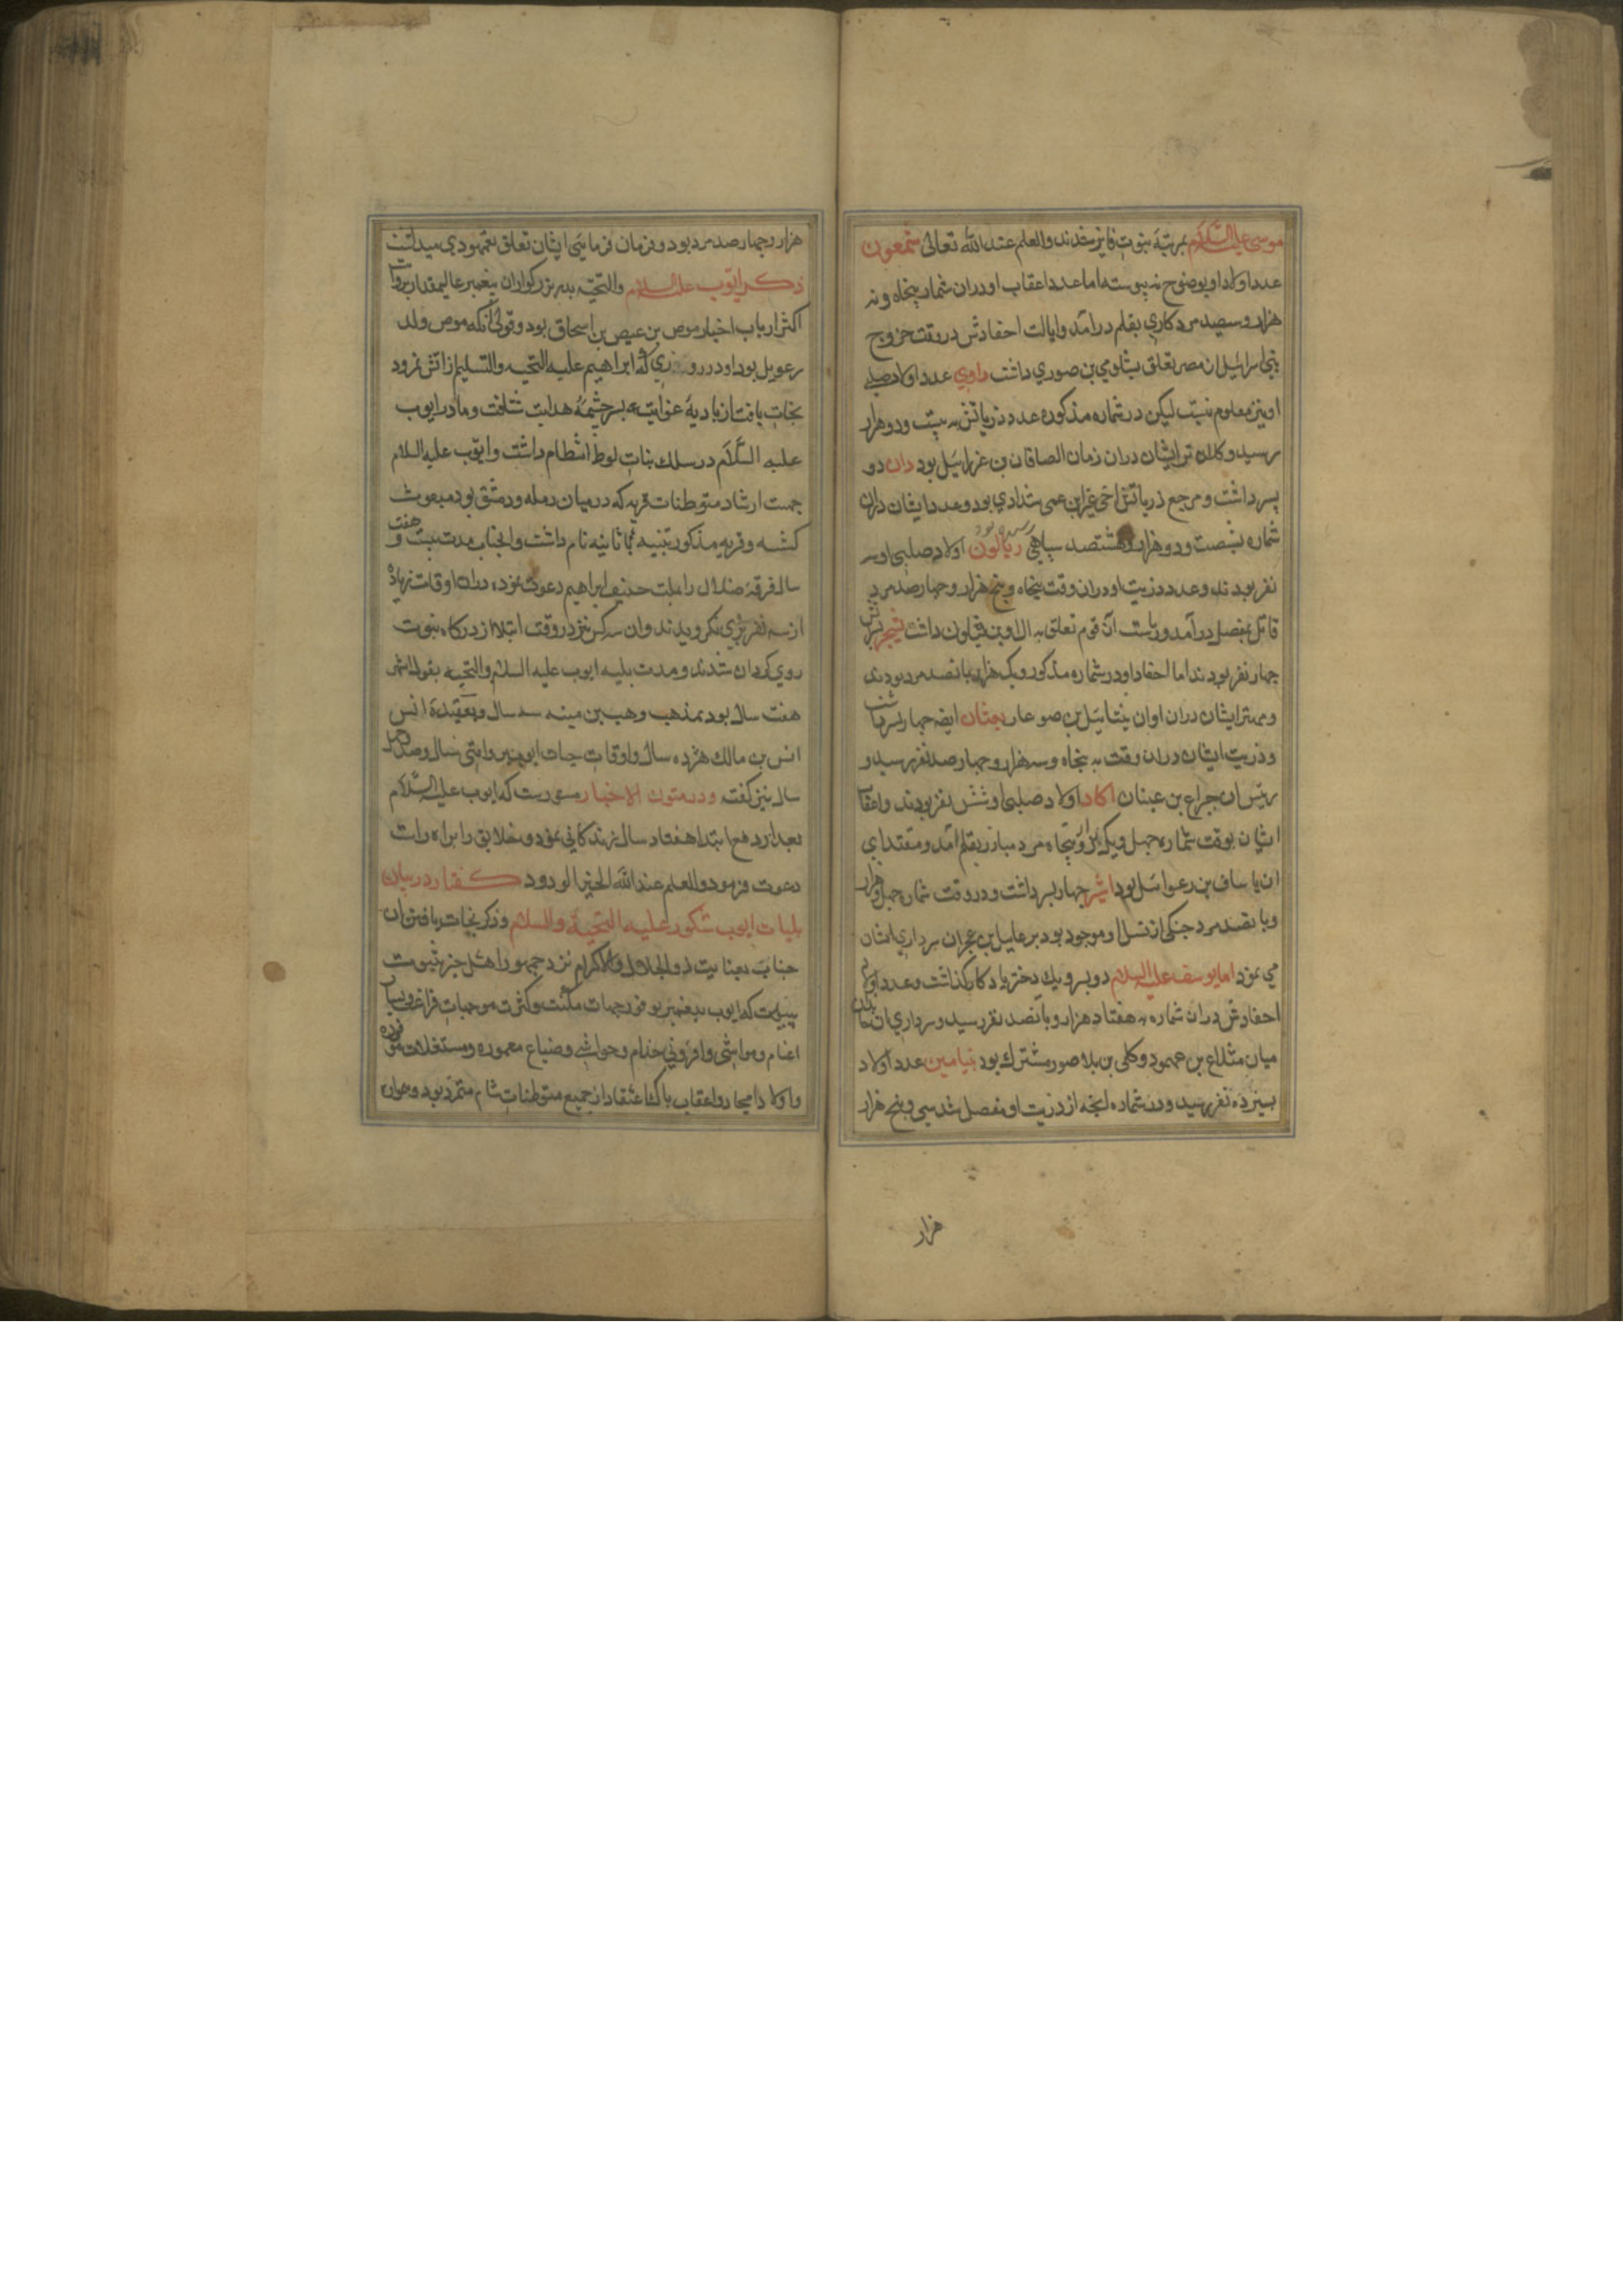 موسی علیه السلام بمرتبهٔ نبوت فایز شدند والعلم عند الله تعالی شمعون
عدد اولاد او بوضوح نه پیوسته اما عدد اعقاب او دران شمار پنجاه و نه
هزار و سیصد مرد کاری بقلم درآمد و ایالت احفادش در وقت خروج
بنی اسرائیل از مصر تعلق بشلومی بن صوری داشت داوی عدد اولاد صلبی
او نیز معلوم نیست لیکن در شماره مذکوره عدد ذریاتش به بیست و دو هزار
رسید و کلان تر ایشان دران زمان الصاقان بن عزرائیل بود دان دو
پسر داشت و مرجع ذریاتش اخی غزابن عمی شدادی بود و عدد ایشان دران
شماره بشصت و دو هزار و هشتصد سپاهی رسیده بود ربالون اولاد صلبی او سه
نفر بودند و عدد ذریت او دران وقت پنجاه و پنج هزار و چهار صد مرد
قاتل بفصیل درآمد و ریاست آن قوم تعلق به الاوبن داشت
چهار نفر بودند اما احفاد او در شماره مذکور ویک هزار پانصد مرد بودند
و مهتر ایشان دران اوان نیتائیل بن صوعار بفتان ایضا چهار پسر داشت
و ذریت ایشان دران وقت به پنجاه و سه هزار و چهار صد نفر رسید و
رئیس ان جراع بن عینان اکاد اولاد صلبی او شش نفر بودند و اعقاب
ایشان بوقت شماره چهل و یک هزار و پنجاه مرد مبارز بقلم آمد و مقتدای
ان یاساف بن رعوائیل بود اشر چهار پسر داشت و در وقت شمار چهل و هزار
و پانصد مرد جنکی از نسل او موجود بود برعلیل بن عجران سرداری ایشان
می نمود اما یوسف علیه السلام دو پسر و یک دختر یادکار گذاشت و عدد اولاد
احفادش دران شماره به هفتاد هزار و پانصد نفر رسید و سرداری ان
میان مثلاع بن عمیهود و کلی بن بلاصور مشترک بود بنیامین عدد اولاد
بسیزده نفر رسید و در شماره انچه از ذریت او مفصل شد سی و پنج هزار
هزار
هزار و چهار صد مرد بود و فرمان فرمایی ایشان تعلق بعمیهودی میداشت
ذکر ایوب علیه السلام والتحیه پدر بزرکوار ان پیغمبر عالیمقدار بروایت
اکثر ارباب اخبار موص بن عیص بن اسحاق بود و قولی آنکه موص ولد
رعویل بود او در روزی که ابراهیم علیه التحیه والتسلیم از آتش نمرود
نجات یافت از بادیهٔ غوایت بسرچشمهٔ هدایت شتافت و مادر ایوب
علیه السلام در سلک بنات لوط انتظام داشت و ایوب علیه السلام
جهت ارشاد متوطنات قریه که در میان رمله و دمشق بود مبعوث
کشته و قریه مذکور بتنیه نام داشت و انجناب مدت بیست و هفت
سال فرقهٔ ضلال را بملت حنیف ابراهیم دعوت نموده دران اوقات زیاده
از سه نفر بوی نکرویدند و ان سه کس نیز در وقت ابتلا از درکاه نبوت
روی کردان شدند و مدت بلیه ایوب علیه السلام والتحیه بقول اشهر
هفت سال بود بمذهب وهب بن منبه سه سال و بعقیدهٔ انس
انس بن مالک هژده سال و اوقات حیات ایوب بروایتی سال و صد و چهل
سال نیز کفته و در متون الاخبار مسطورست که ایوب علیه السلام
بعد از رفع ابتلا هفتاد سال زندکانی نمود و خلایق را براه راست
دعوت فرمود والعلم عند الله الخبیر الودود کفتار در بیان
بلیات ایوب شکور علیه التحیة والسلام و ذکر نجات یافتن ان
جناب بعنایت ذو الجلال والاکرام نزد جمهور اهل خبر بثبوت
پیوسته که ایوب پیغمبر بوفور جهات مکنت و کثرت موجبات فراغت و بسیاری
اغنام و مواشی و افزونی خدام و حواشی و ضیاع معموره و مستغلات موفوره
و اولاد امجاد و اعقاب پاک اعتقاد از جمیع متوطنات شام متمرد بود و همواره